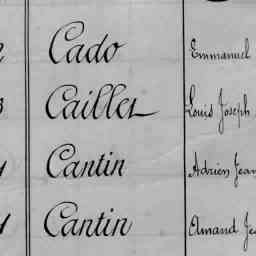 Cado Emmanuel
Caillet Louis Joseph
Cantin Adrien Jean
Cantin Amand